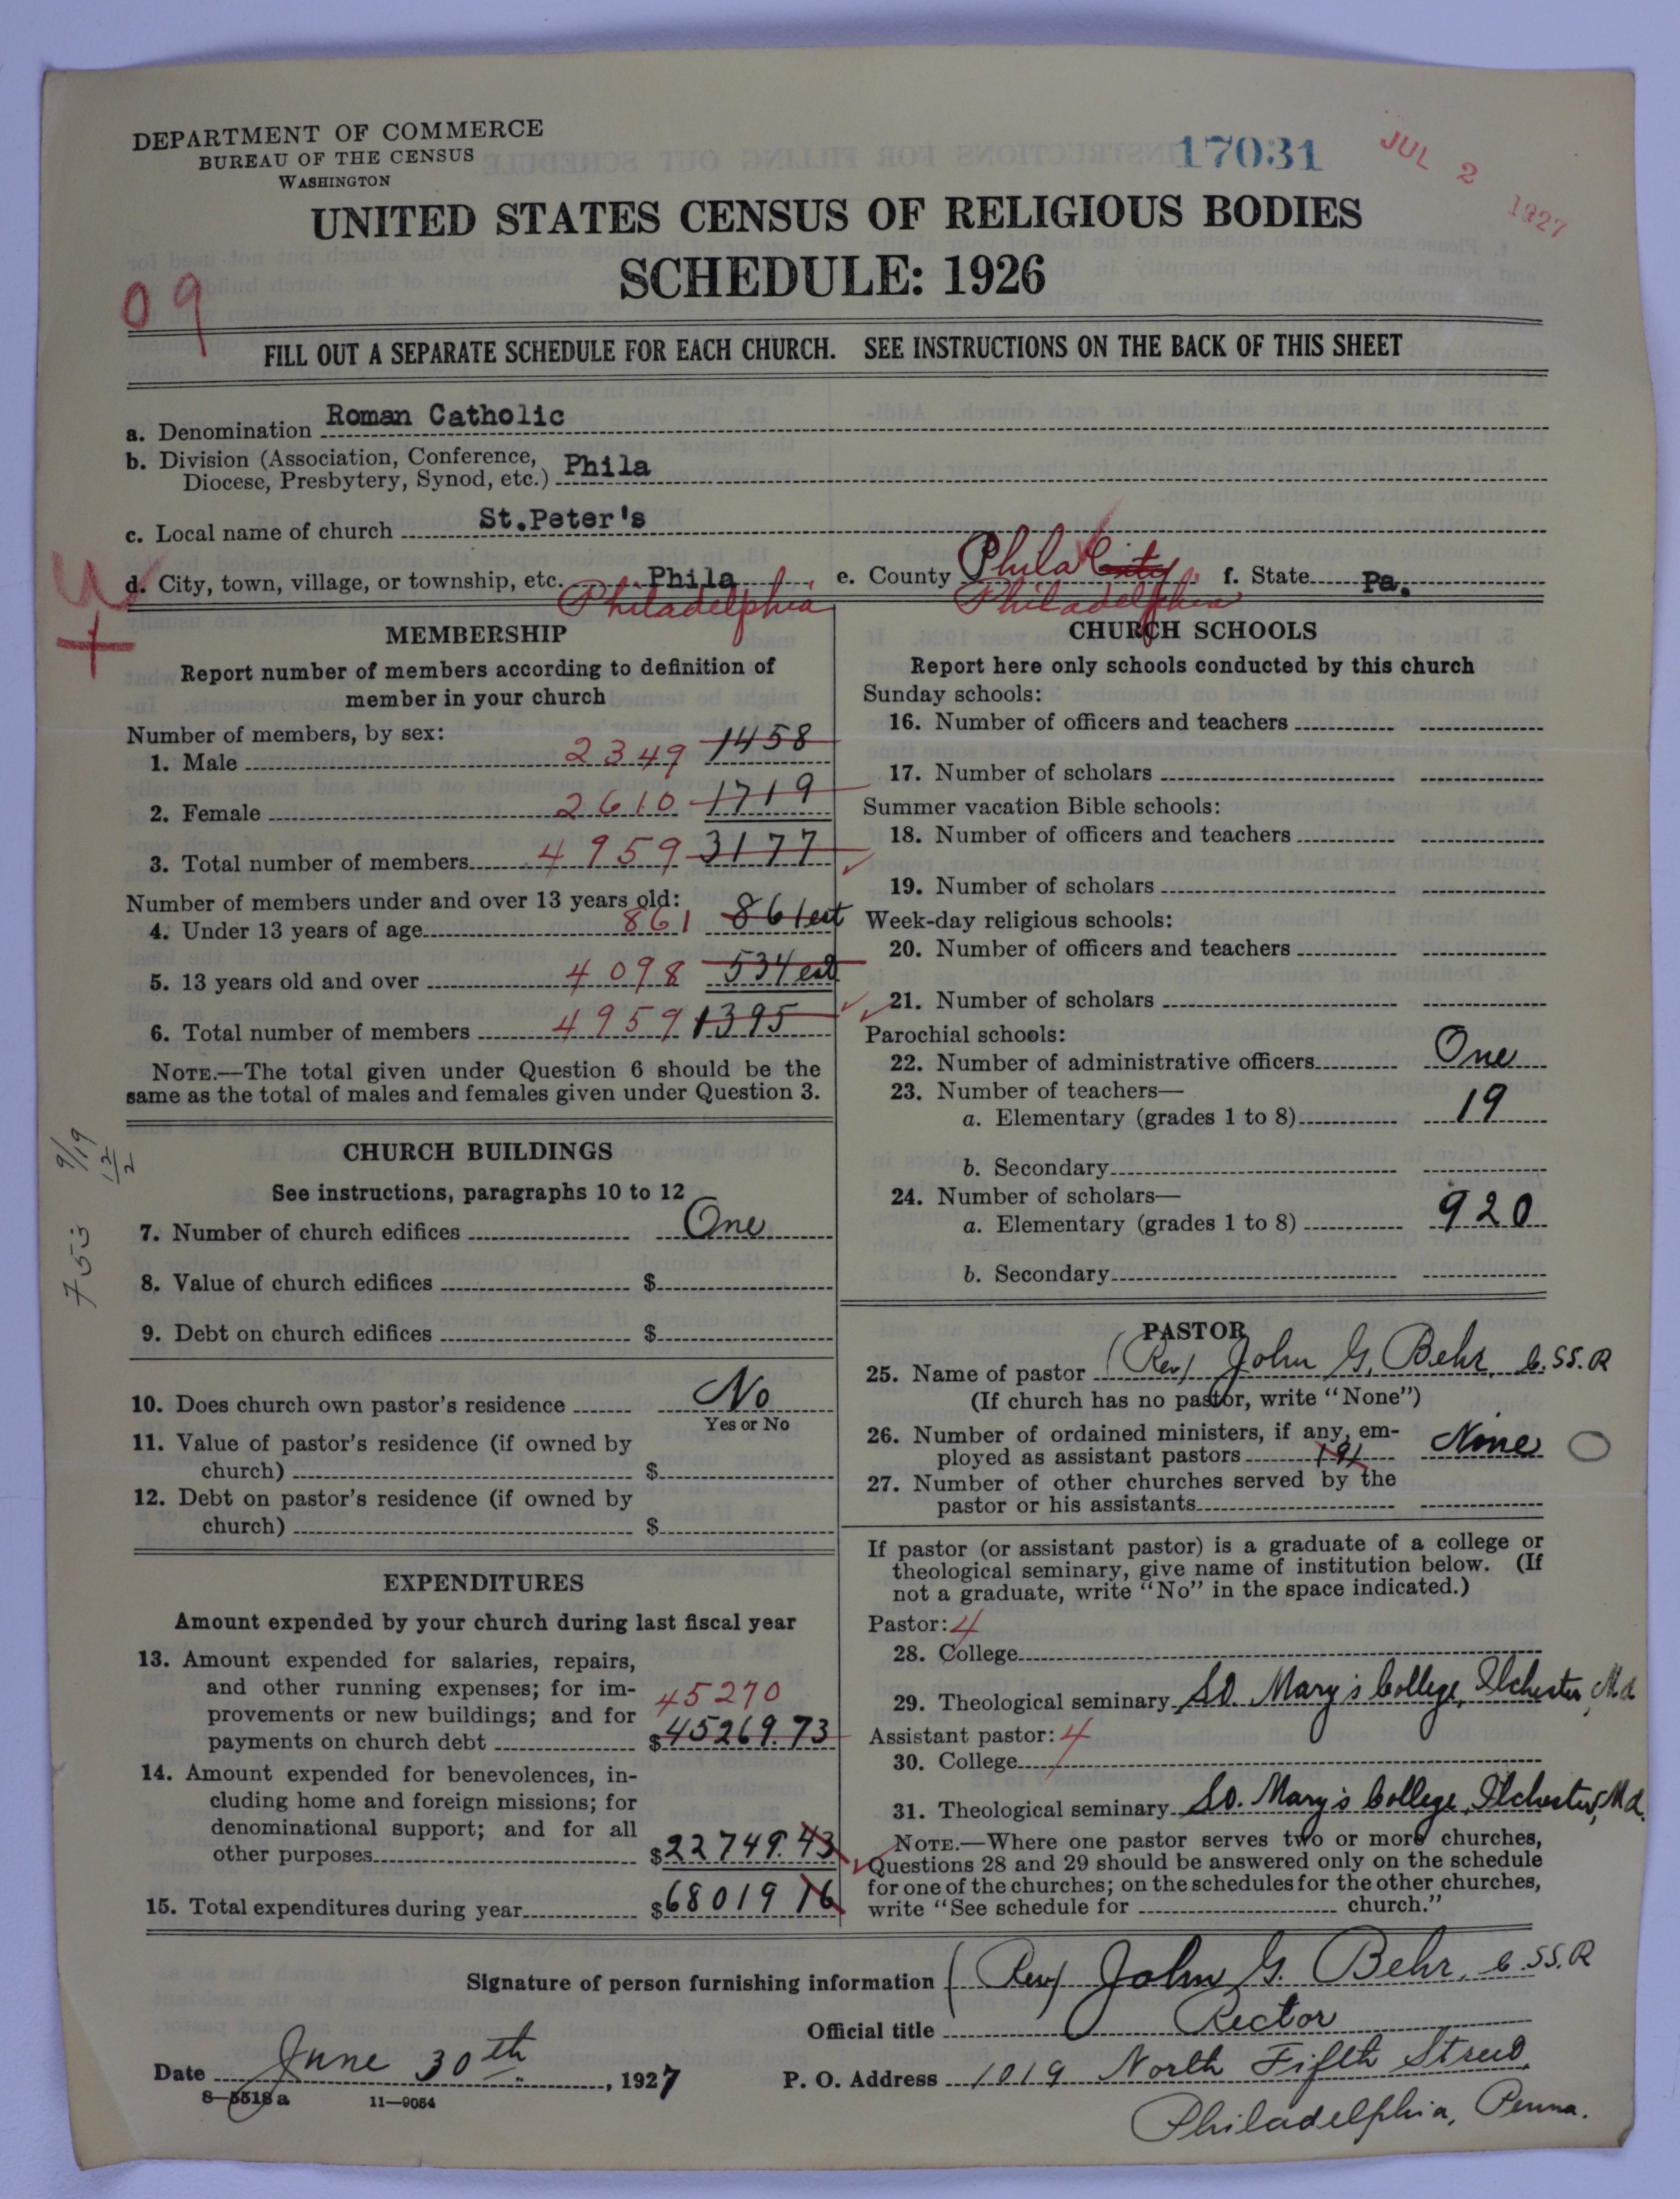 DEPARTMENT OF COMMERCE
BUREAU OF THE CENSUS
WASHINGTON
17031
JUL 2 1927
UNITED STATES CENSUS OF RELIGIOUS BODIES
SCHEDULE: 1926
09
FILL OUT A SEPARATE SCHEDULE FOR EACH CHURCH. SEE INSTRUCTIONS ON THE BACK OF THIS SHEET
a. Denomination Roman Catholic
b. Division (Association, Conference, Diocese, Presbytery, Synod, etc.) Phila
c. Local name of church St.Peter's
d. City, town, village, or township, etc. Phila, e. County Phila City. f. State Pa.
Philadelphia Philadelphia
MEMBERSHIP
Report number of members according to definition of
member in your church
Number of members, by sex:
1. Male 2349 1458
2. Female 2610 1719
3. Total number of members 4959 3177
Number of members under and over 13 years old:
4. Under 13 years of age 861 861 est
5. 13 years old and over 4098 534 est
6. Total number of members 4959 1395
NOTE.—The total given under Question 6 should be the
same as the total of males and females given under Question 3.
CHURCH BUILDINGS
See instructions, paragraphs 10 to 12
7. Number of church edifices One
8. Value of church edifices $
9. Debt on church edifices $
10. Does church own pastor's residence No
Yes or No
11. Value of pastor's residence (if owned by
church) $
12. Debt on pastor's residence (if owned by
church) $
EXPENDITURES
Amount expended by your church during last fiscal year
13. Amount expended for salaries, repairs,
and other running expenses; for im-
provements or new buildings; and for 45270
payments on church debt $45269.73
14. Amount expended for benevolences, in-
cluding home and foreign missions; for
denominational support; and for all
other purposes $22749.43
15. Total expenditures during year $68019 16
CHURCH SCHOOLS
Report here only schools conducted by this church
Sunday schools:
16. Number of officers and teachers
17. Number of scholars
Summer vacation Bible schools:
18. Number of officers and teachers
19. Number of scholars
Week-day religious schools:
20. Number of officers and teachers
21. Number of scholars
Parochial schools:
22. Number of administrative officers One
23. Number of teachers—
a. Elementary (grades 1 to 8) 19
b. Secondary
24. Number of scholars—
a. Elementary (grades 1 to 8) 920
b. Secondary
PASTOR
25. Name of pastor (Rev) John G. Behr, C.SS.R
(If church has no pastor, write "None")
26. Number of ordained ministers, if any, em-
ployed as assistant pastors None
27. Number of other churches served by the
pastor or his assistants
If pastor (or assistant pastor) is a graduate of a college or
theological seminary, give name of institution below. (If
not a graduate, write "No" in the space indicated.)
Pastor: 4
28. College
29. Theological seminary St. Mary's College, Ilchester, Md
Assistant pastor: 4
30. College
31. Theological seminary St. Mary's College, Ilchester, Md.
NOTE.—Where one pastor serves two or more churches,
Questions 28 and 29 should be answered only on the schedule
for one of the churches; on the schedules for the other churches,
write "See schedule for church."
Signature of person furnishing information (Rev) John G. Behr, C.SS.R
Official title Rector
Date June 30th, 1927 P. O. Address 1019 North Fifth Street
Philadelphia, Penna.
8-5518a 11-9054